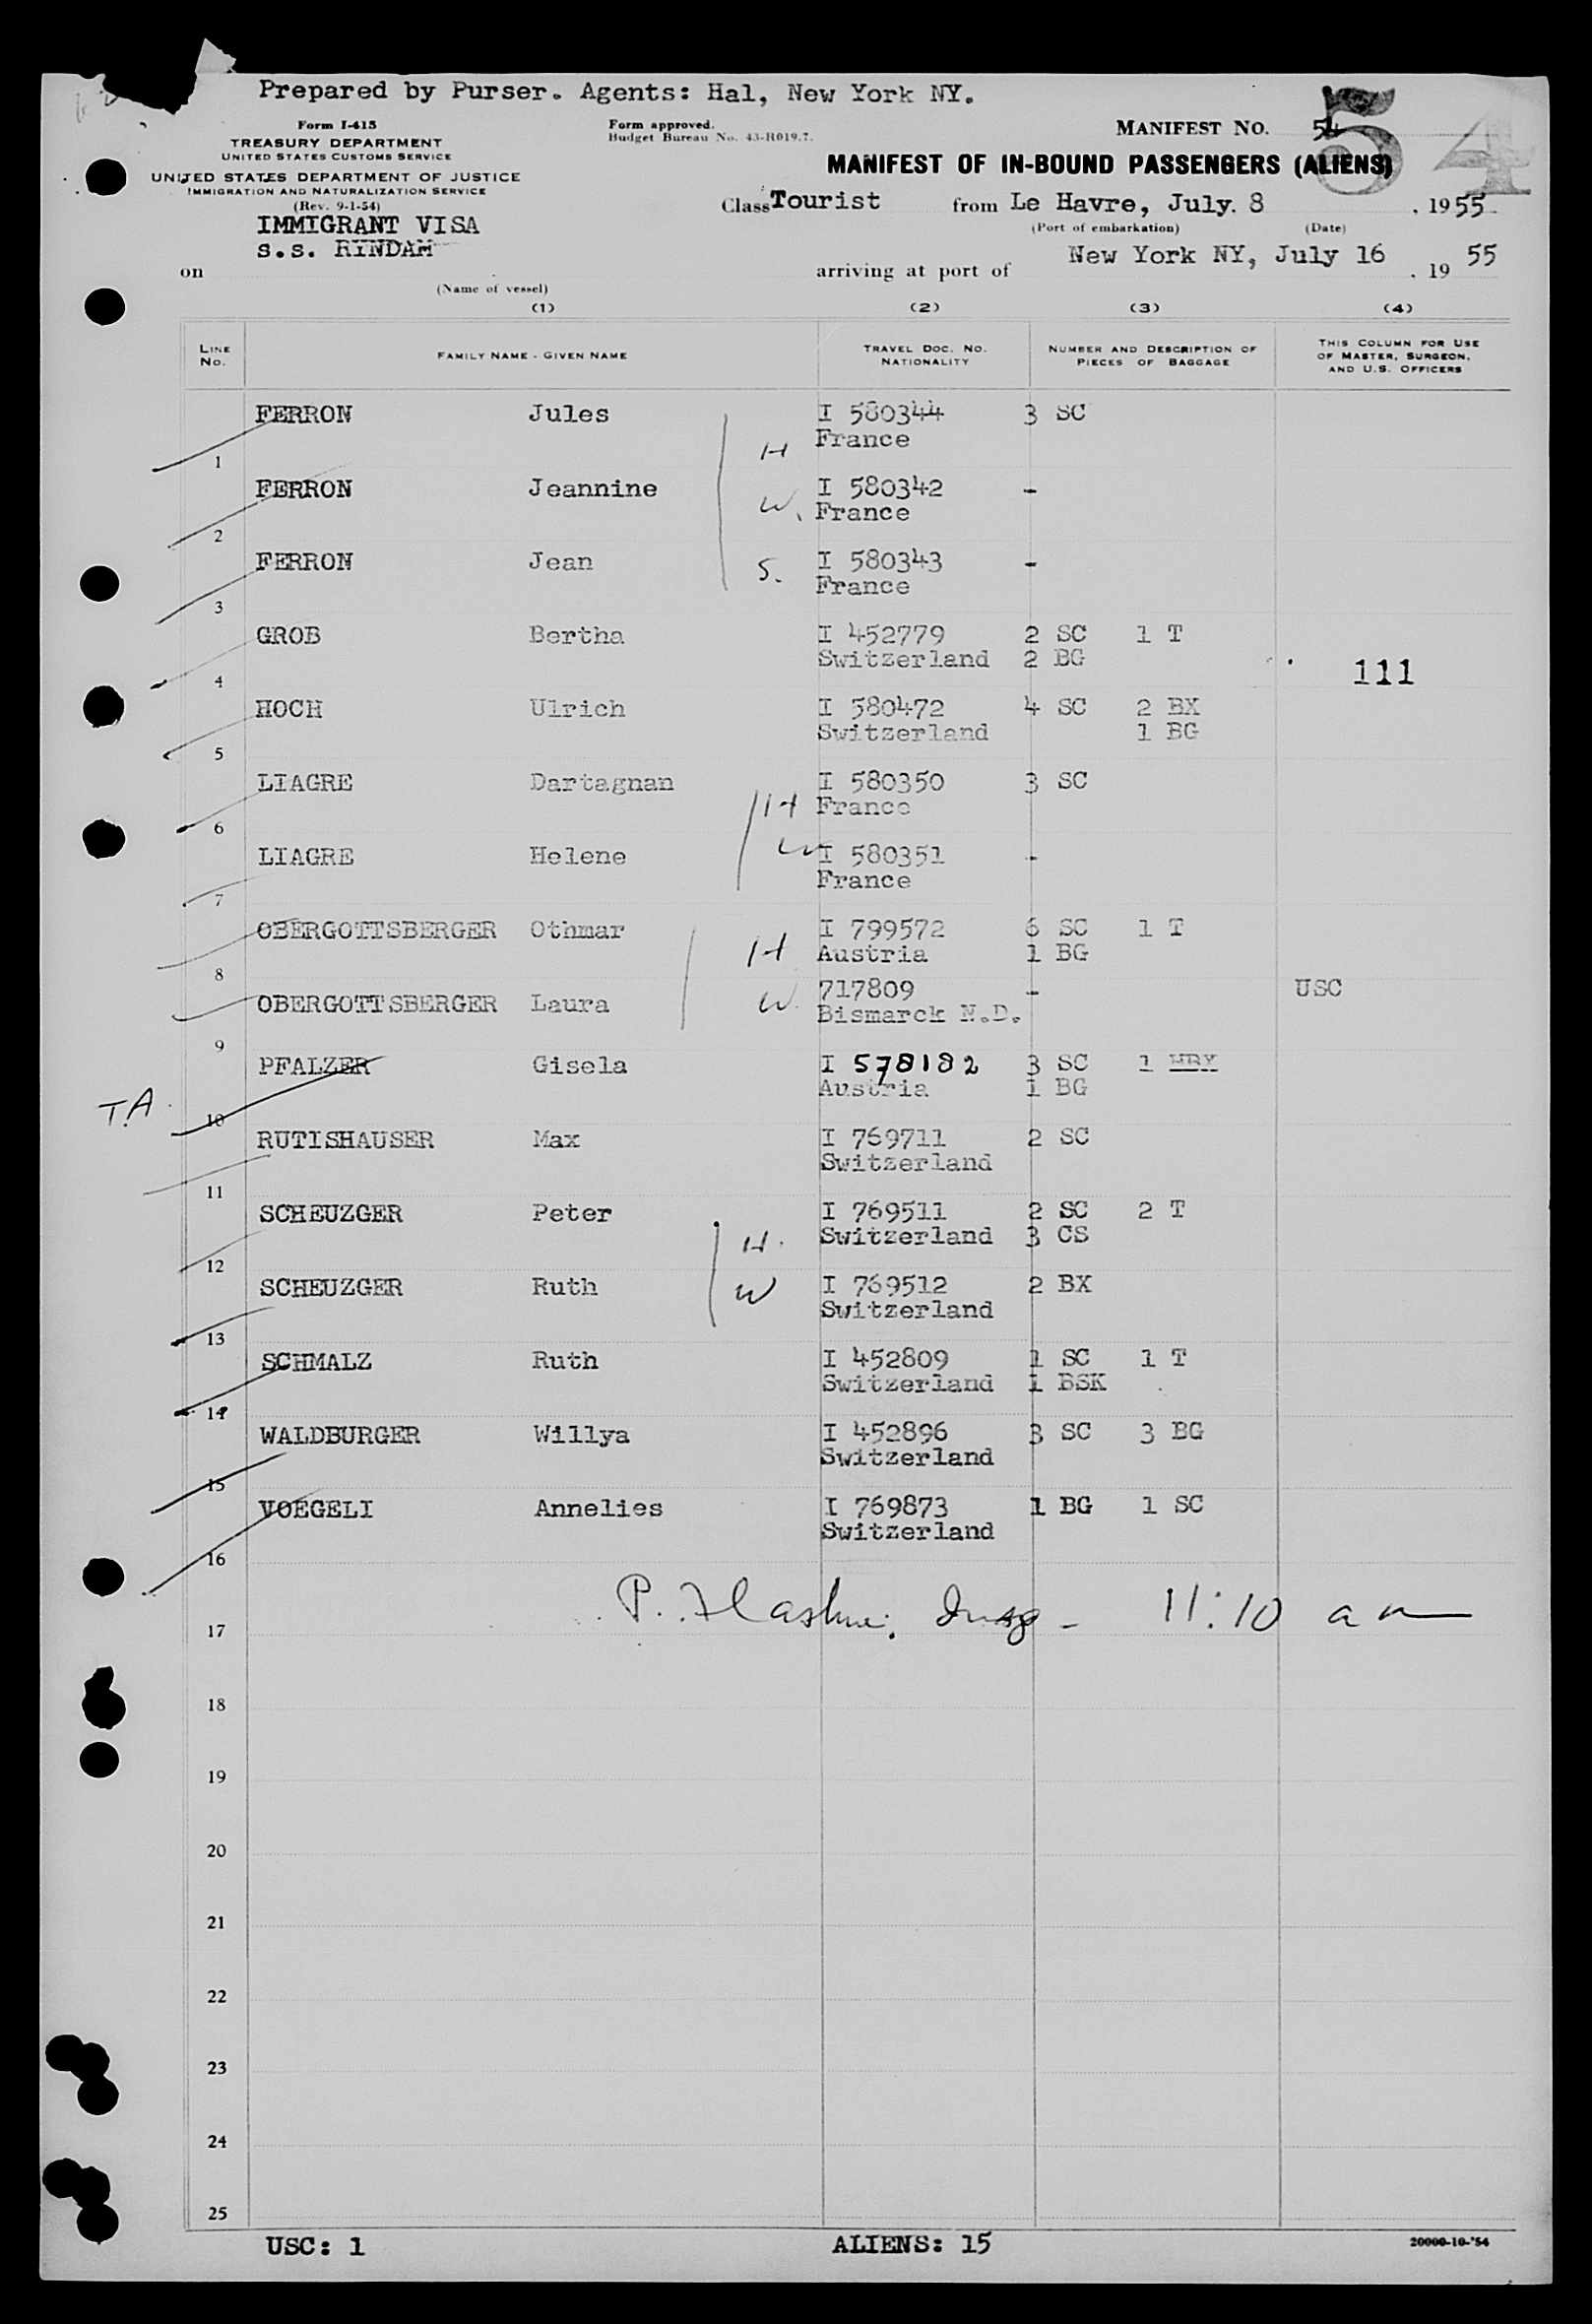 Prepared by Purser. Agents: Hal, New York NY.
Form I-415
TREASURY DEPARTMENT
UNITED STATES CUSTOMS SERVICE
UNITED STATES DEPARTMENT OF JUSTICE
IMMIGRATION AND NATURALIZATION SERVICE
(Rev. 9-1-54)
IMMIGRANT VISA
Form approved.
Budget Bureau No. 43-R019.7.
MANIFEST NO. 54
54
MANIFEST OF IN-BOUND PASSENGERS (ALIENS)
Class Tourist from Le Havre, July. 8 , 1955
(Port of embarkation) (Date)
on s.s. RINDAM
(Name of vessel)
arriving at port of New York NY, July 16 , 19 55
(1) (2) (3) (4)
LINE NO. FAMILY NAME - GIVEN NAME TRAVEL DOC. NO. NATIONALITY NUMBER AND DESCRIPTION OF PIECES OF BAGGAGE THIS COLUMN FOR USE OF MASTER, SURGEON, AND U.S. OFFICERS
FERRON Jules I 580344 3 SC
1 H France
FERRON Jeannine I 580342 -
2 W. France
FERRON Jean I 580343 -
3 S. France
GROB Bertha I 452779 2 SC 1 T
4 Switzerland 2 BG 111
HOCH Ulrich I 580472 4 SC 2 BX
5 Switzerland 1 BG
LIAGRE Dartagnan I 580350 3 SC
6 H France
LIAGRE Helene W I 580351 -
7 France
OBERGOTTSBERGER Othmar I 799572 6 SC 1 T
8 H Austria 1 BG
OBERGOTTSBERGER Laura W. 717809 - USC
9 Bismarck N.D.
PFALZER Gisela I 578182 3 SC 1 HBX
T.A. 10 Austria 1 BG
RUTISHAUSER Max I 769711 2 SC
11 Switzerland
SCHEUZGER Peter I 769511 2 SC 2 T
12 H. Switzerland 3 CS
SCHEUZGER Ruth W I 769512 2 BX
13 Switzerland
SCHMALZ Ruth I 452809 1 SC 1 T
14 Switzerland 1 BSK
WALDBURGER Willya I 452896 3 SC 3 BG
15 Switzerland
VOEGELI Annelies I 769873 1 BG 1 SC
16 Switzerland
P. 11:10 am
17
18
19
20
21
22
23
24
25
USC: 1 ALIENS: 15 20000-10-'54